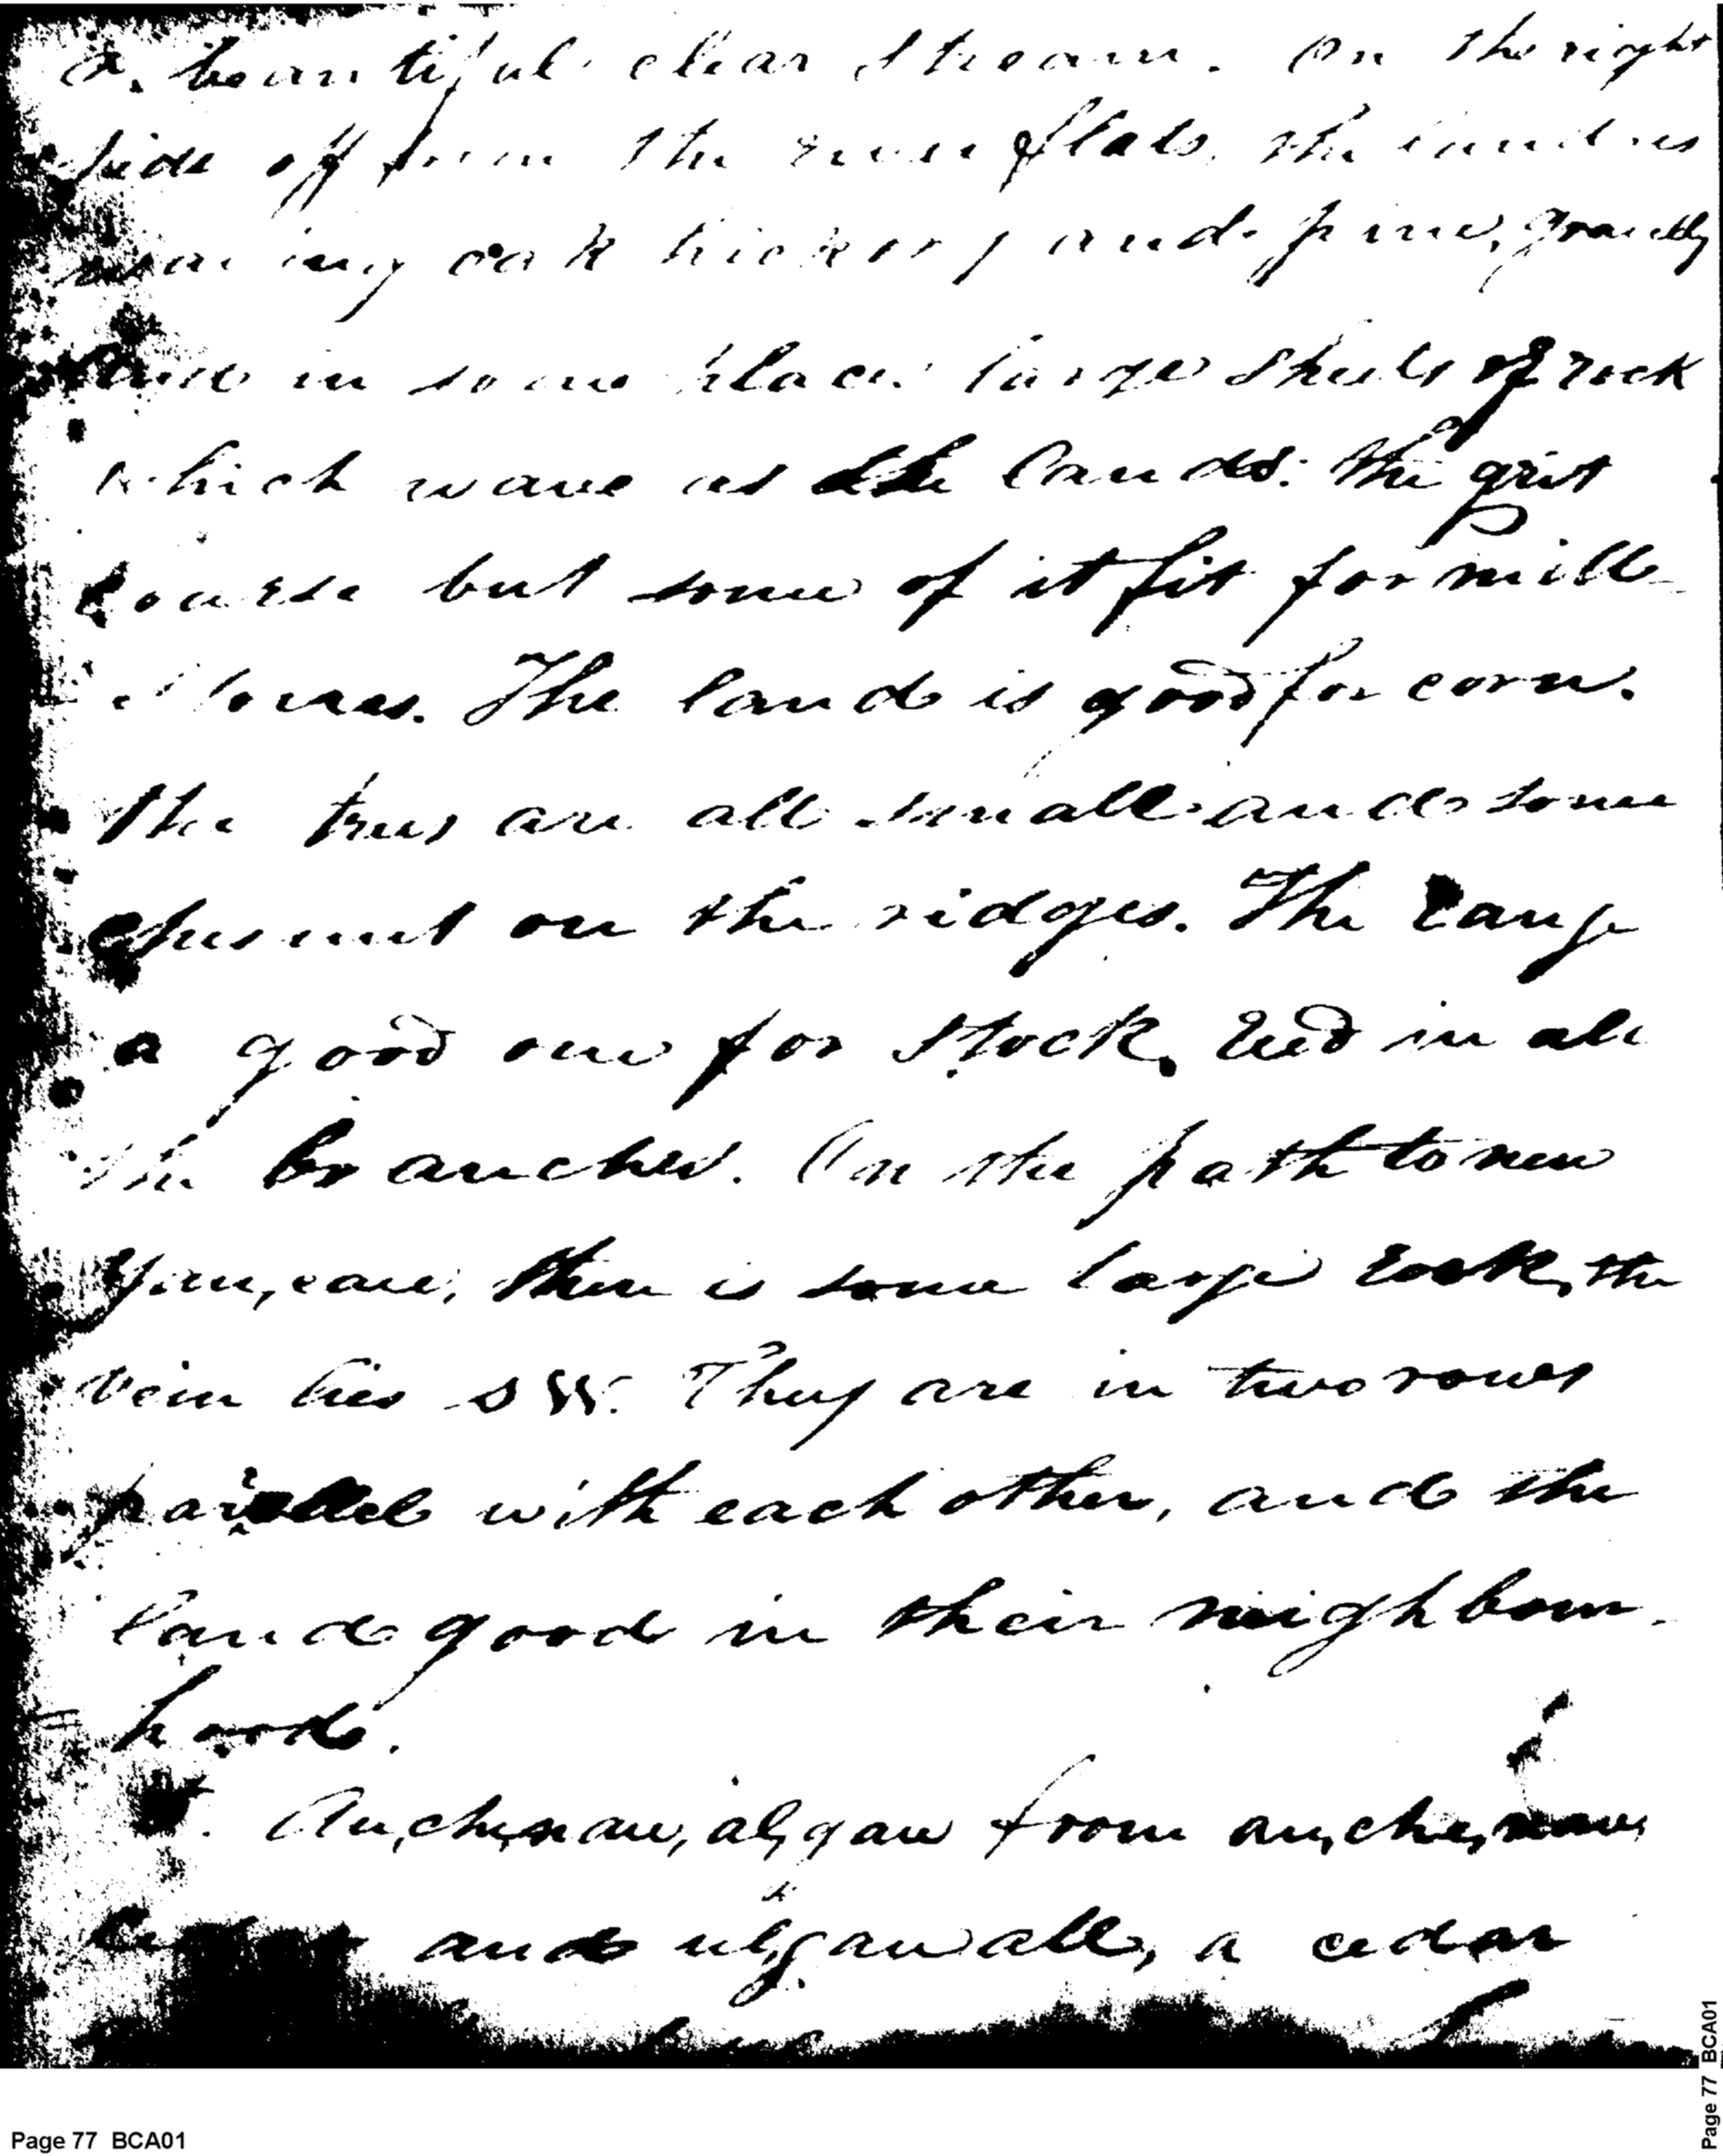 a beautiful clear stream. On the right
side off from the river flats, the land is
waving oak hickory and pine, gravelly
and in some places large sheets of rock
which wave as the lands. the grit
coarse but some of it fit for mill
stones. The land is good for corn.
the trees are all small and some
chesnut on the ridges. The range
a good one for stock, reed in all
the branches. On the path to new
yau,cau, there is some large rock, the
vein lies SW. They are in two rows
parallel with each other, and the
land good in their neighbour-
hood.
Au,che,nau,ul,gau from au,che,nau,
and ulgau all, a cedar
Page 77 BCA01
Page 77 BCA01